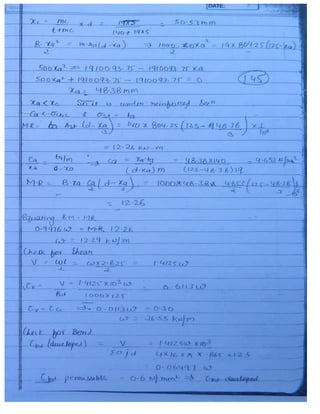 DATE:
xc = mc / t+mc x d = 19x5 / 140+19x5 = 50.53 mm
B·xa²/2 = m·Ast(d-xa) ⇒ 1000/2 xa² = 19 x 804.25 (125-xa)
500xa² = 1910093.75 - 1910093.75 xa
500xa² + 1910093.75 - 1910093.75 = 0
xa = 48.38 mm (145)
xa < xc So it is under reinforced Section
Ca < σcbc & σst = ta
MR = ta Ast (d - xa/3) = 140 x 804.25 (125 - 48.38/3) x 1/10⁶
= 12.26 kN·m
Ca/xa = ta/m / d-xa ⇒ Ca = xa·ta / (d-xa)m = 48.38x140 / (125-48.38)19 = 4.652 N/mm²
M·R = B·xa Ca/2 (d - xa/3) = 1000x48.38x 4.652/2 (125 - 48.38/3)
= 12.26
Equating BM = MR
0.9976w = MR 12.26
w = 12.29 kN/m
Check for Shear
V = wl/2 = wx2.825/2 = 1.4125w
τv = V/Bd = 1.4125x10³w / 1000x125 = 0.0113w
τv = τc ⇒ 0.0113w = 0.30
w = 26.55 kN/m
Check for Bond
τbd (developed) = V / ΣOjd = 1.4125wx10³ / 4x16xπx.865x125
= 0.06497w
τbd permissible = 0.6 N/mm² ⇒ τbd developed